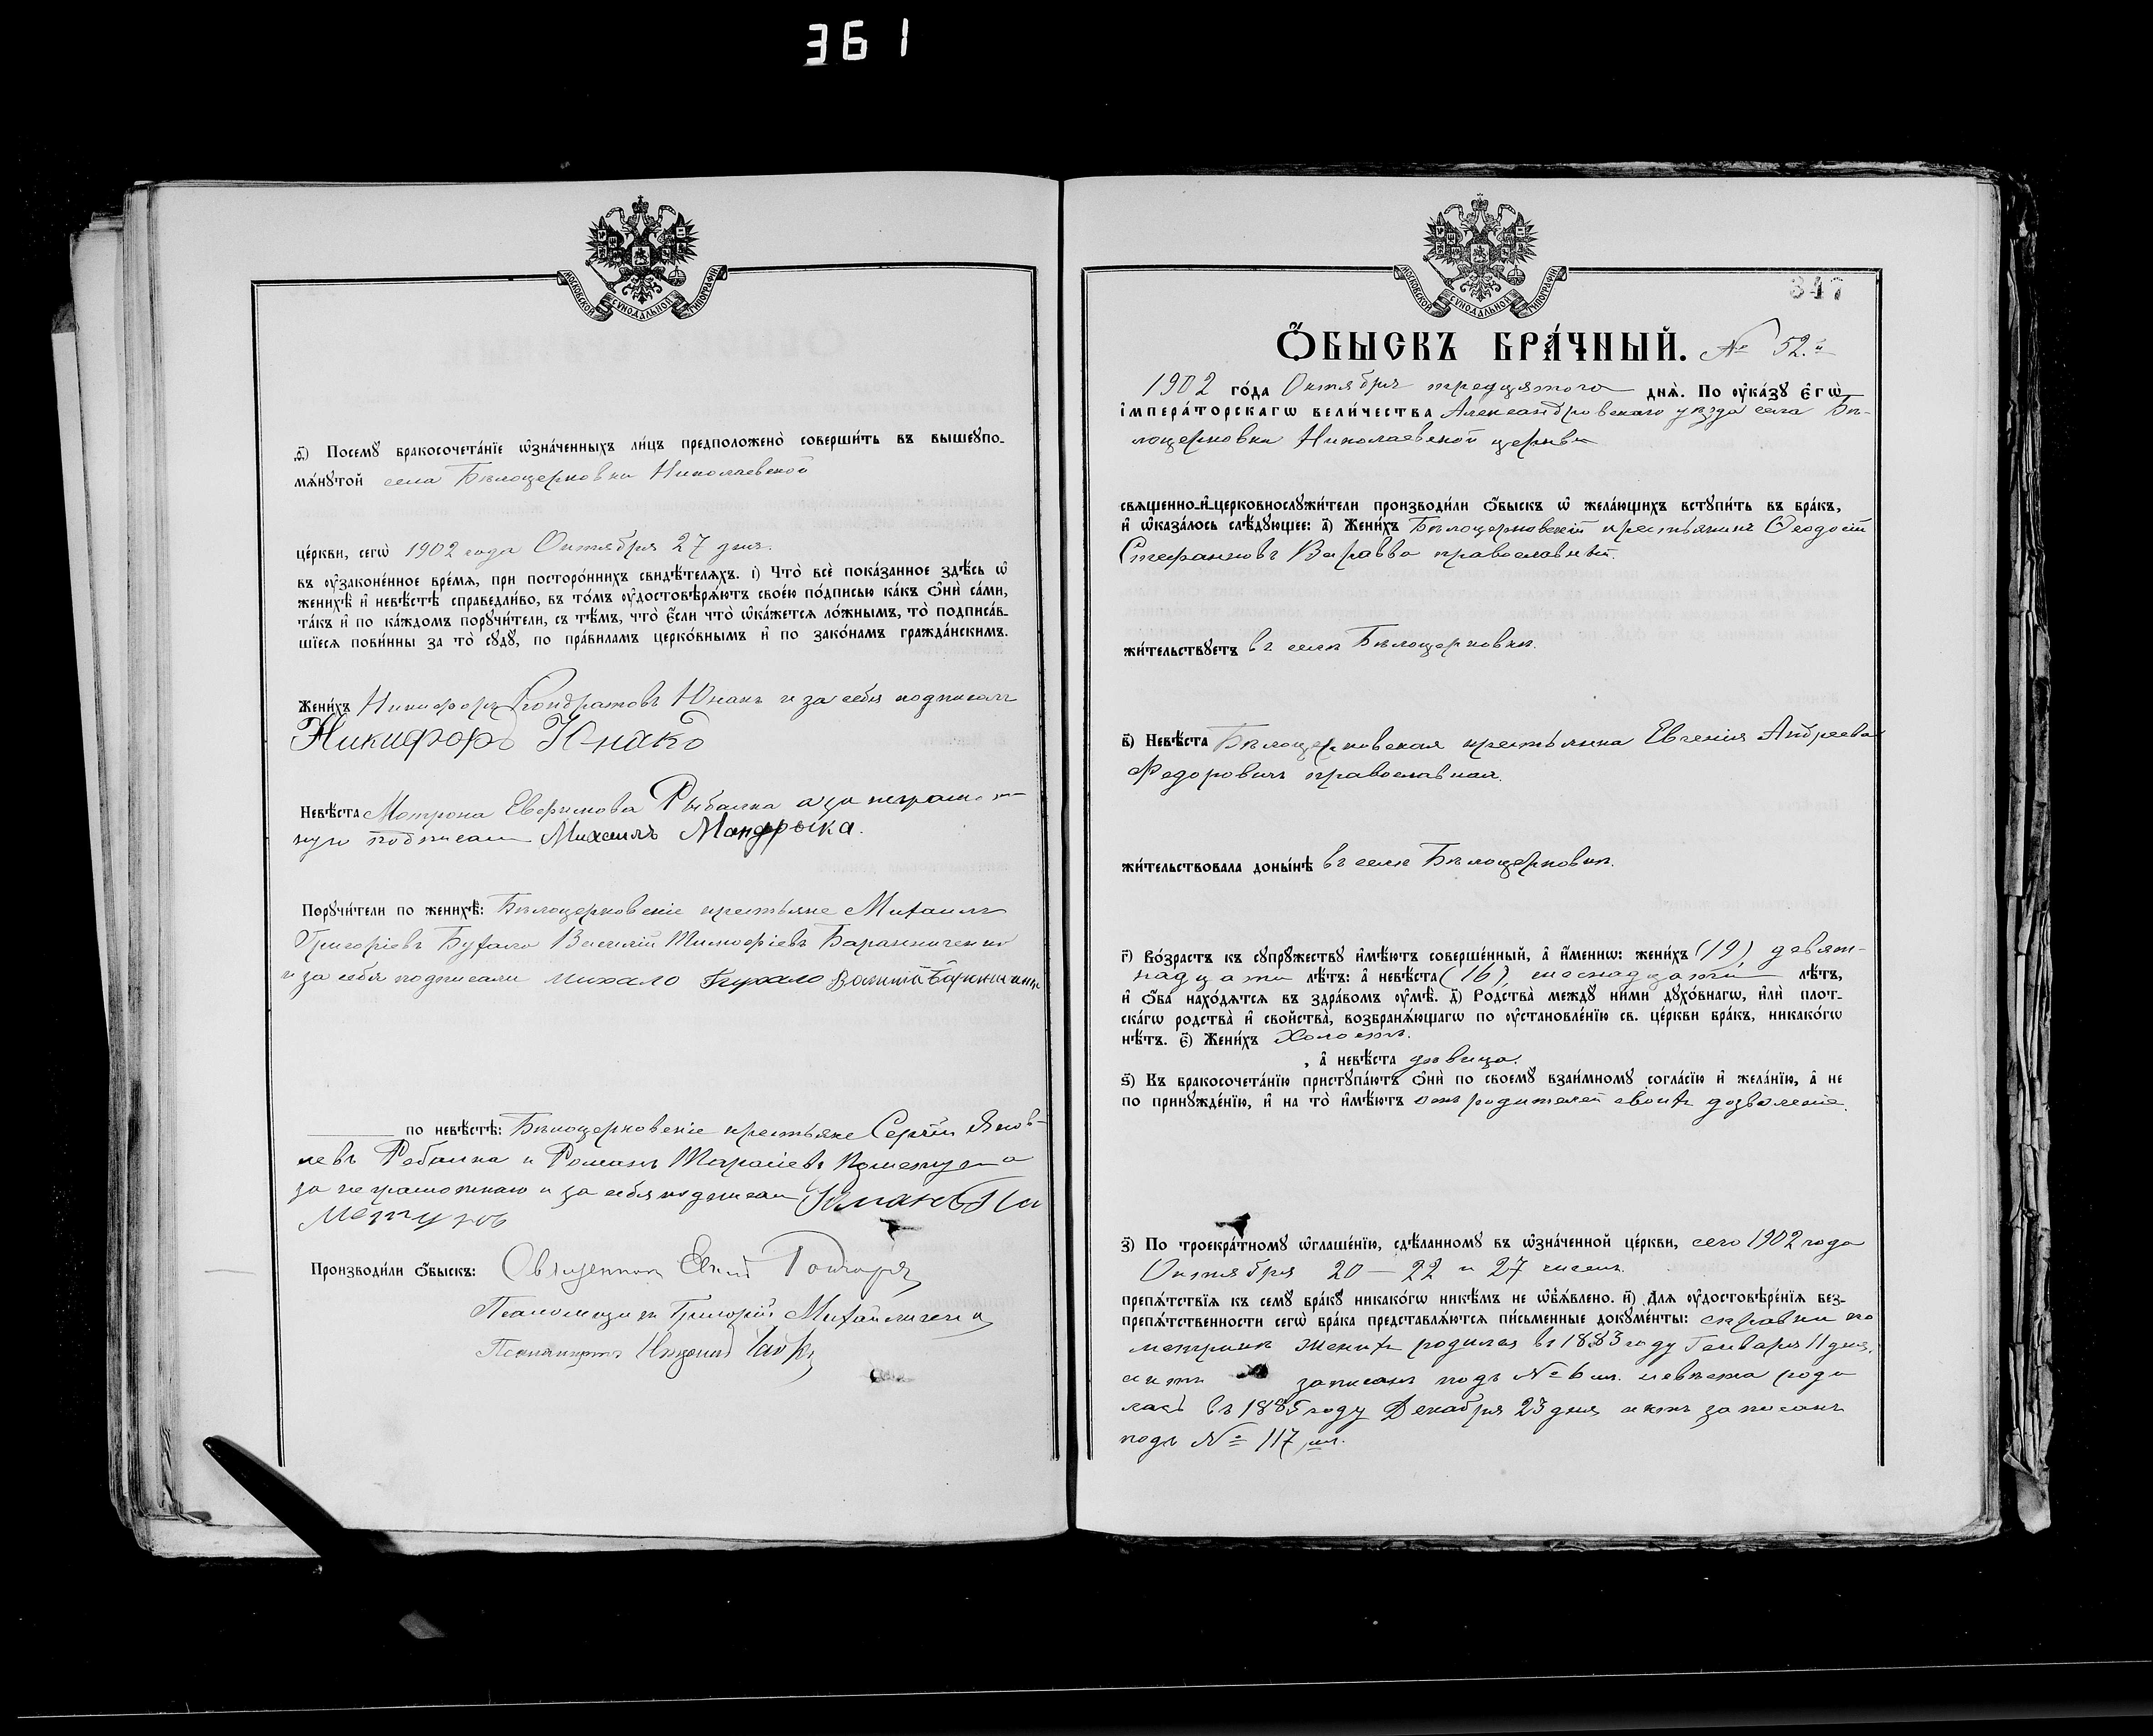 361
МОСКОВСКОЙ СУНОДАЛЬНОЙ ТИПОГРАФІИ
ѳ҃) Посемꙋ бракосочета́нїе ѡ҆зна́ченныхъ ли́цъ предположено̀ соверши́ть въ вышеꙋпо-
мѧ́нꙋтой села Бѣлоцерковки Николаевской
це́ркви, сегѡ̀ 1902 года Октября 27 дня.
въ ᲂу҆законе́нное вре́мѧ, при посторо́ннихъ свидѣ́телѧхъ. і҃) Что̀ всѐ пока́занное здѣ́сь ѡ҆
женихѣ̀ и҆ невѣ́стѣ справедли́во, въ то́мъ ᲂу҆достовѣрѧ́ютъ свое́ю по́дписью ка́къ ѻ҆нѝ са́ми,
та́къ и҆ по ка́ждомъ порꙋчи́тели, съ тѣ́мъ, что̀ є҆́сли что̀ ѡ҆ка́жетсѧ ло́жнымъ, то̀ подписа́в-
шїесѧ пови́нны за то̀ сꙋдꙋ̀, по пра́виламъ церко́внымъ и҆ по зако́намъ гражда́нскимъ.
Жени́хъ Никифоръ Кондратовъ Юнакъ и за себя подписалъ
Никифоръ Юнакъ
Невѣ́ста Матрона Евфимова Рыбалка а за неграмот-
ную подписалъ Михаилъ Мандрыка.
Порꙋчи́тели по женихѣ̀: Бѣлоцерковскіе крестьяне Михаилъ
Григоріевъ Бухало Василій Тимофіевъ Баранниченко
и за себя подписали михало Бухало Василій
по невѣ́стѣ: Бѣлоцерковскіе крестьяне Сергѣй Яков-
левъ Рыбалка и Романъ Тарасіевъ
за неграмотнаго и за себя подписалъ Романъ
Производи́ли ѻ҆́быскъ: Священникъ Гончаръ
Псаломщикъ Григорій Михайличенко
Псаломщикъ
МОСКОВСКОЙ СУНОДАЛЬНОЙ ТИПОГРАФІИ
347
Ѻ҆БЫСКЪ БРА́ЧНЫЙ. № 52.й
1902 го́да Октября тредцятого днѧ̀. По ᲂу҆ка́зꙋ є҆гѡ̀
і҆мпера́торскагѡ вели́чества Александровскаго уѣзда села Бѣ-
лоцерковки Николаевской церкви
свѧщенно-и҆-церковнослꙋжи́тели производи́ли ѻ҆́быскъ ѡ҆ жела́ющихъ встꙋпи́ть въ бра́къ,
и҆ ѡ҆каза́лось слѣ́дꙋющее: а҃) Жени́хъ Бѣлоцерковскій крестьянинъ Ѳеодосій
Стефановъ Варавва православный.
жи́тельствꙋетъ въ селѣ Бѣлоцерковки.
в҃) Невѣ́ста Бѣлоцерковская крестьянка Евгенія Андреева
Федоровичъ православная.
жи́тельствовала донынѣ въ селѣ Бѣлоцерковки.
г҃) Во́зрастъ къ сꙋпрꙋ́жествꙋ и҆мѣ́ютъ соверше́нный, а҆ и҆́меннѡ: жени́хъ (19) девят-
надцати лѣ́тъ: а҆ невѣ́ста (16) шеснадцати лѣ́тъ,
и҆ ѻ҆́ба нахо́дѧтсѧ въ здра́вомъ ᲂу҆мѣ̀. д҃) Ро́дства̀ междꙋ̀ ни́ми дꙋхо́внагѡ, и҆лѝ пло́т-
скагѡ родства̀ и҆ сво́йства̀, возбранѧ́ющагѡ по ᲂу҆становле́нїю св. це́ркви бра́къ, никако́гѡ
нѣ́тъ. є҃) Жени́хъ холостъ.
, а҆ невѣ́ста дѣвица.
ѕ҃) Къ бракосочета́нїю пристꙋпа́ютъ ѻ҆нѝ по своемꙋ̀ взаи́мномꙋ согла́сїю и҆ жела́нїю, а҆ не
по принꙋжде́нїю, и҆ на то̀ и҆мѣ́ютъ отъ родителей своихъ дозволеніе.
з҃) По троекра́тномꙋ ѡ҆глаше́нїю, сдѣ́ланномꙋ въ ѡ҆зна́ченной це́ркви, сего 1902 года
Октября 20 — 22 и 27 чиселъ.
препѧ́тствїѧ къ семꙋ̀ бра́кꙋ никако́гѡ никѣ́мъ не ѡ҆б̾ѧ́влено. и҃) Длѧ ᲂу҆достовѣре́нїѧ без-
препѧ́тственности сегѡ̀ бра́ка представлѧ́ютсѧ пи́сьменные докꙋме́нты: справки по
метрикѣ женихъ родился въ 1883 году Генваря 11 дня,
актъ записанъ подъ № 6 м. невѣста роди
лась въ 1885 году Декабря 23 дня актъ записанъ
подъ № 117 м.